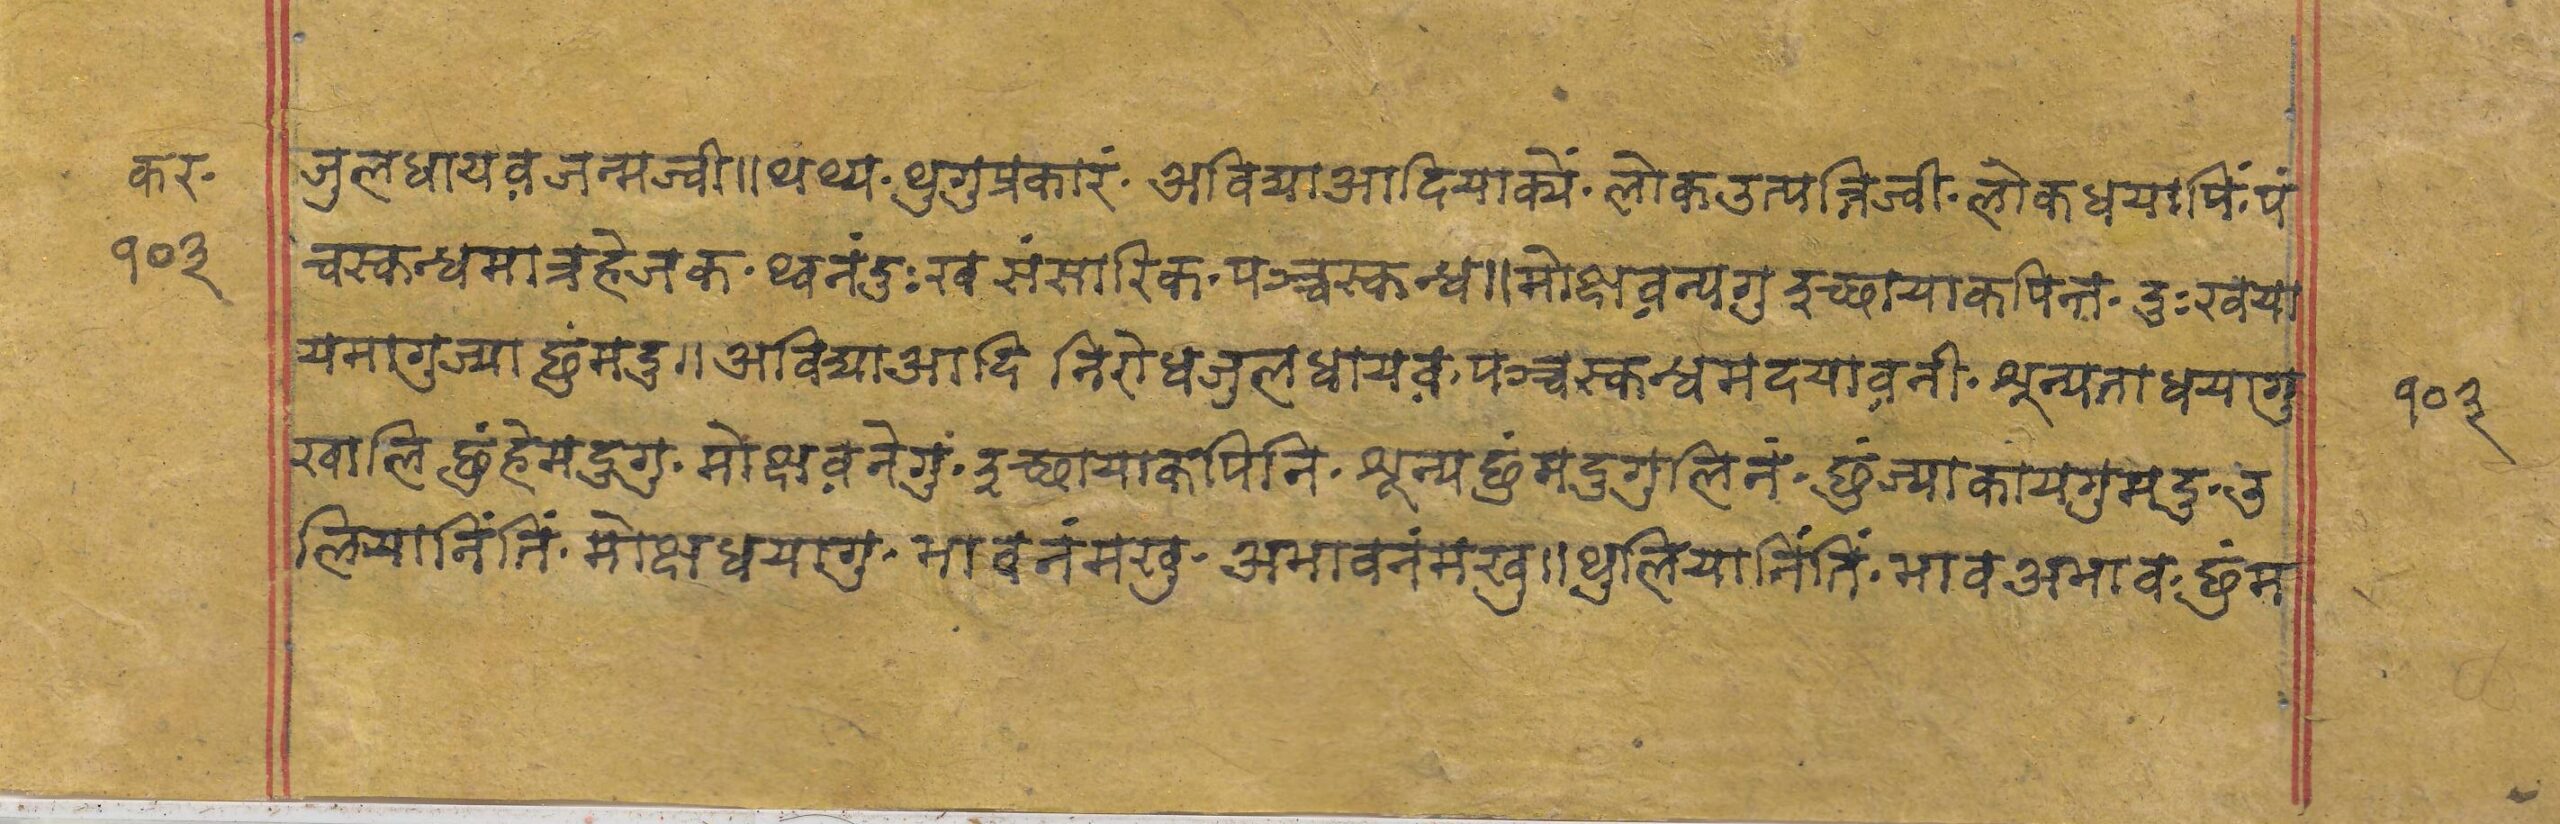 कर॰ जुलधायव़जन्मज्वी॥थथ्य॰थुगुप्रकारं॰ अविद्याआदियाक्यें॰लोकउत्पन्निज्वी॰लोकधयापिं॰पं
१०३ चस्कन्धमात्रहेजक॰थ्वनंदुःखसंसारिक॰पञ्चस्कन्ध॥मोक्षव़न्यगुइच्छायाकपिन्त॰दुःखया
यमागुज्याछुंमदु॥अविद्याआदि निरोधजुलधायव़॰पञ्चस्कन्धमदयाव़नी॰शून्यताधयागु १०३
खालिछुंहेमदुगु॰मोक्षव़नेगुं॰इच्छायाकपिनि॰शून्यछुंमदुगुलिनं॰छुंज्याकायगुमदु॰उ
लियानिंतिं॰मोक्षधयागु॰भावनंमखु॰अभावनंमखु॥थुलियानिंतिं॰भावअभाव॰छुंम